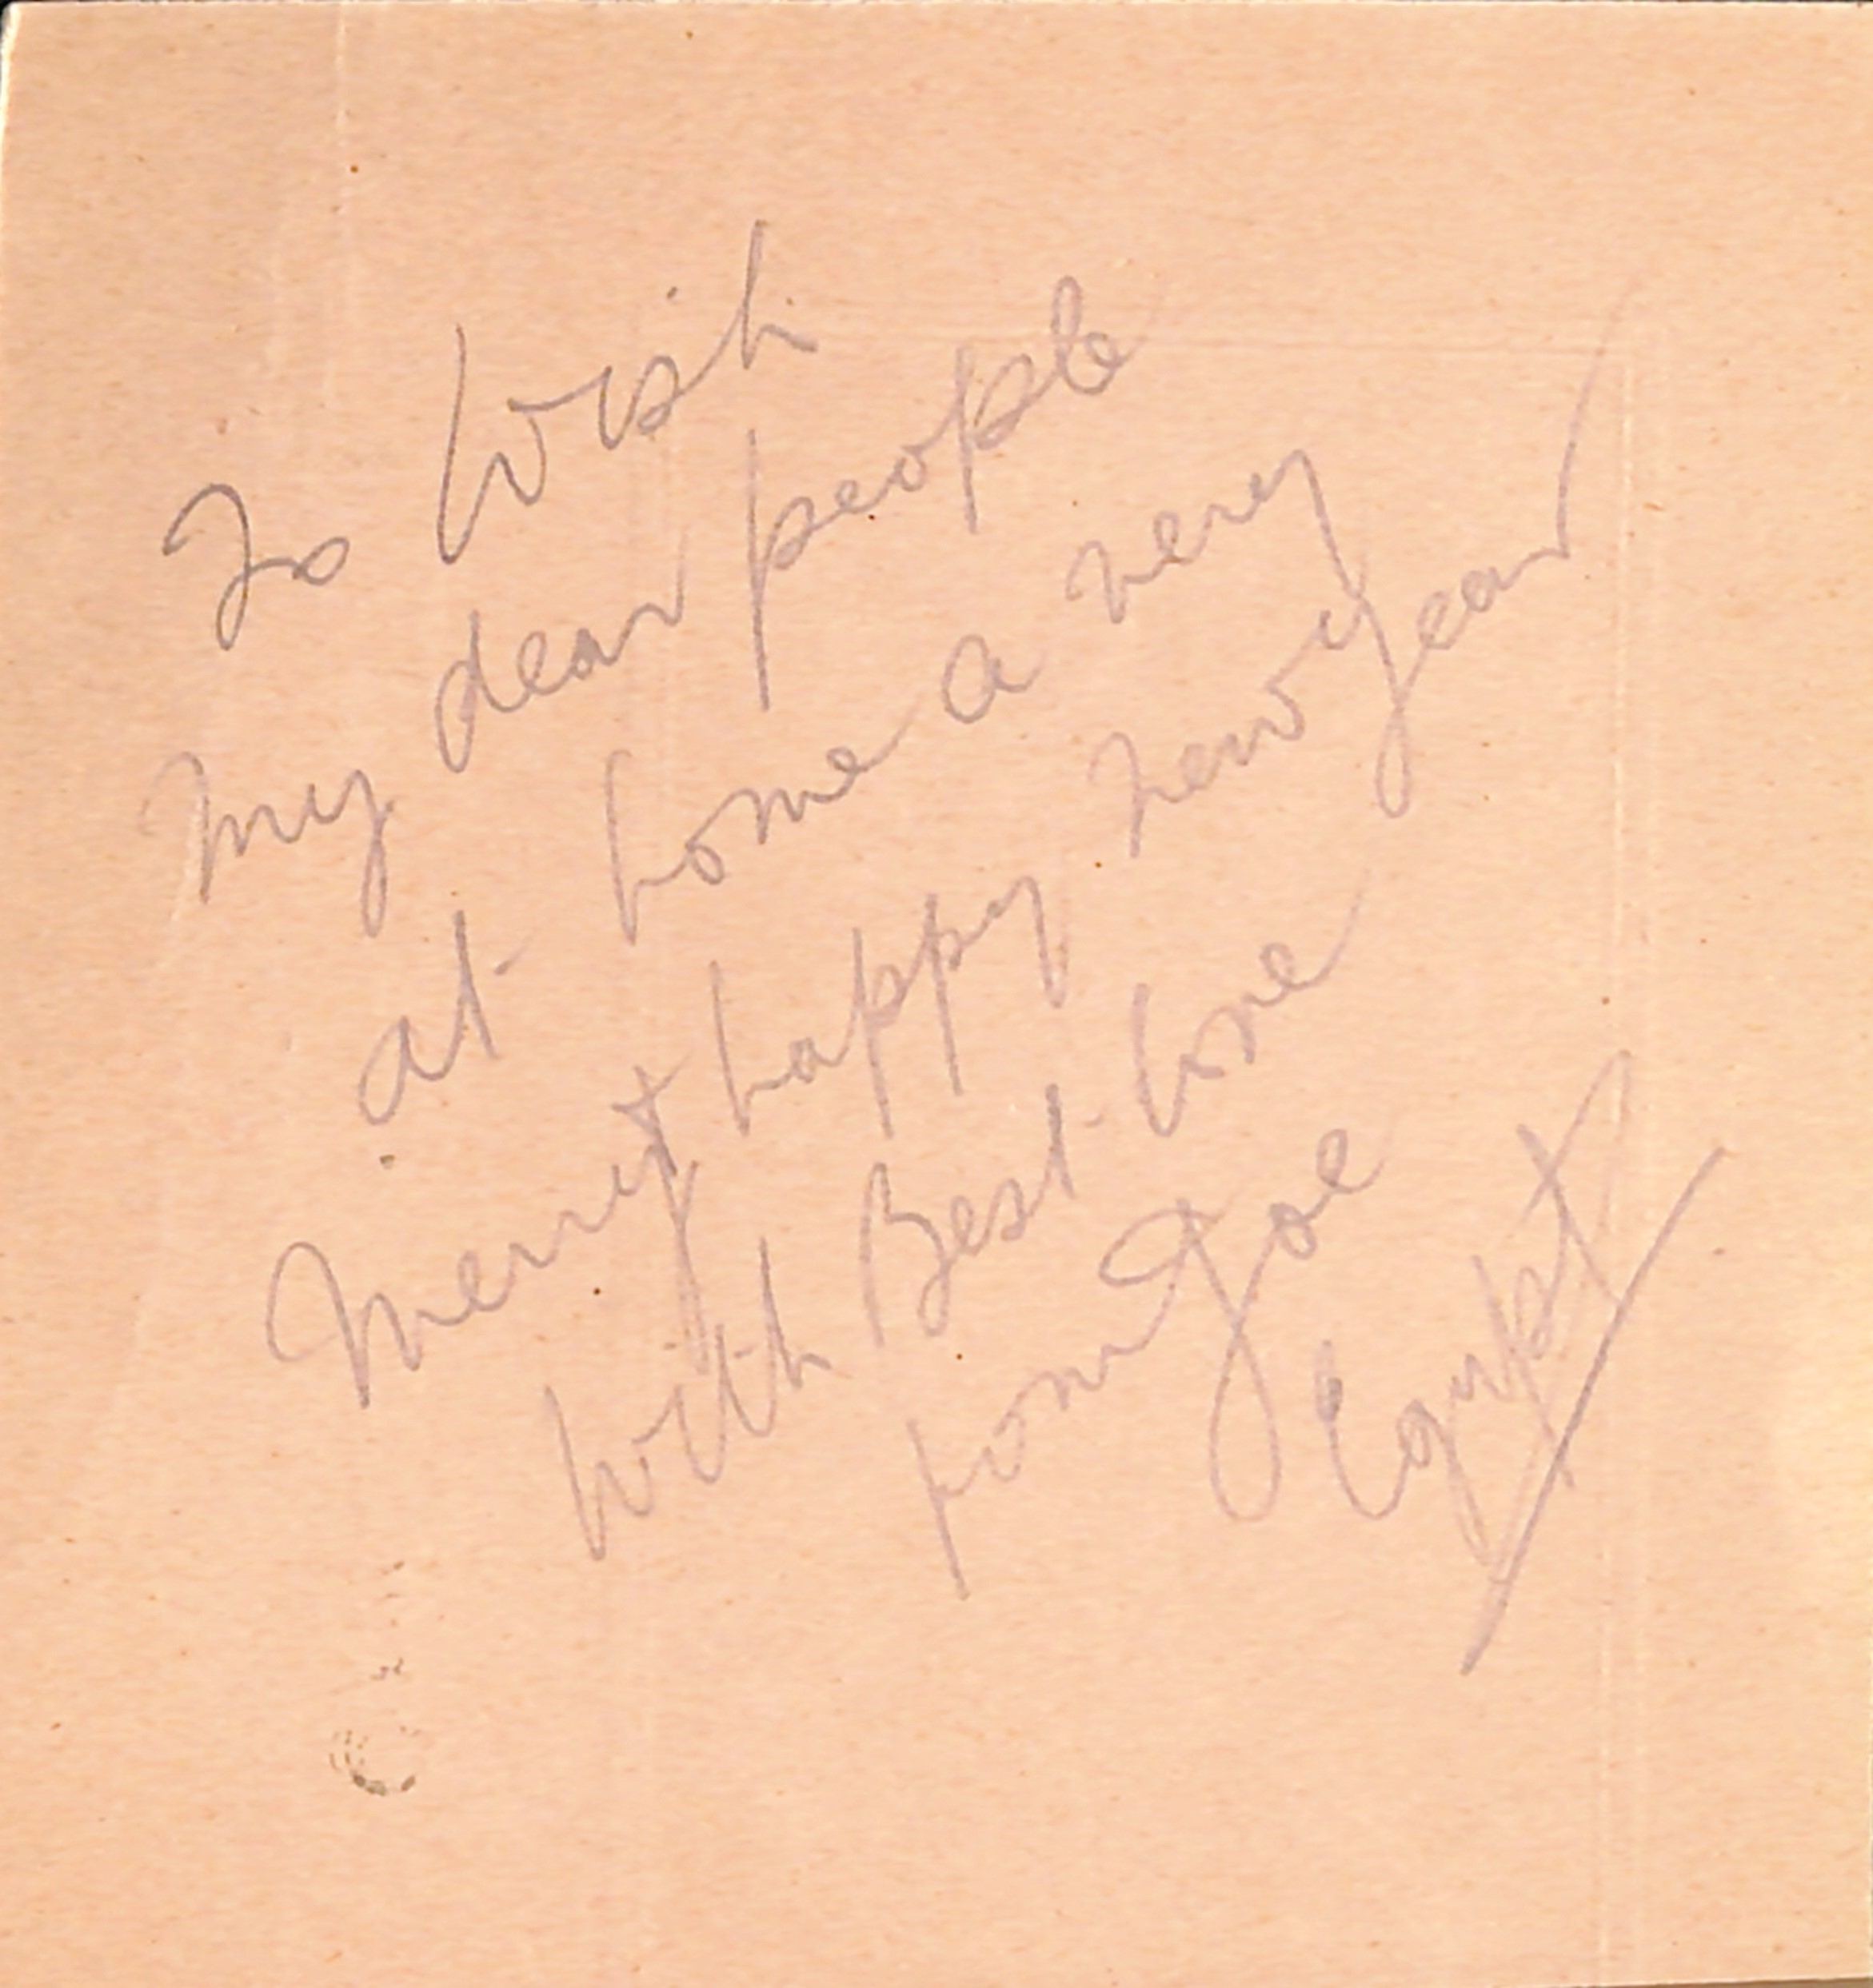 To Wish
my dear people
at home a very
Merry happy new year
with Best love
from Joe
Egypt